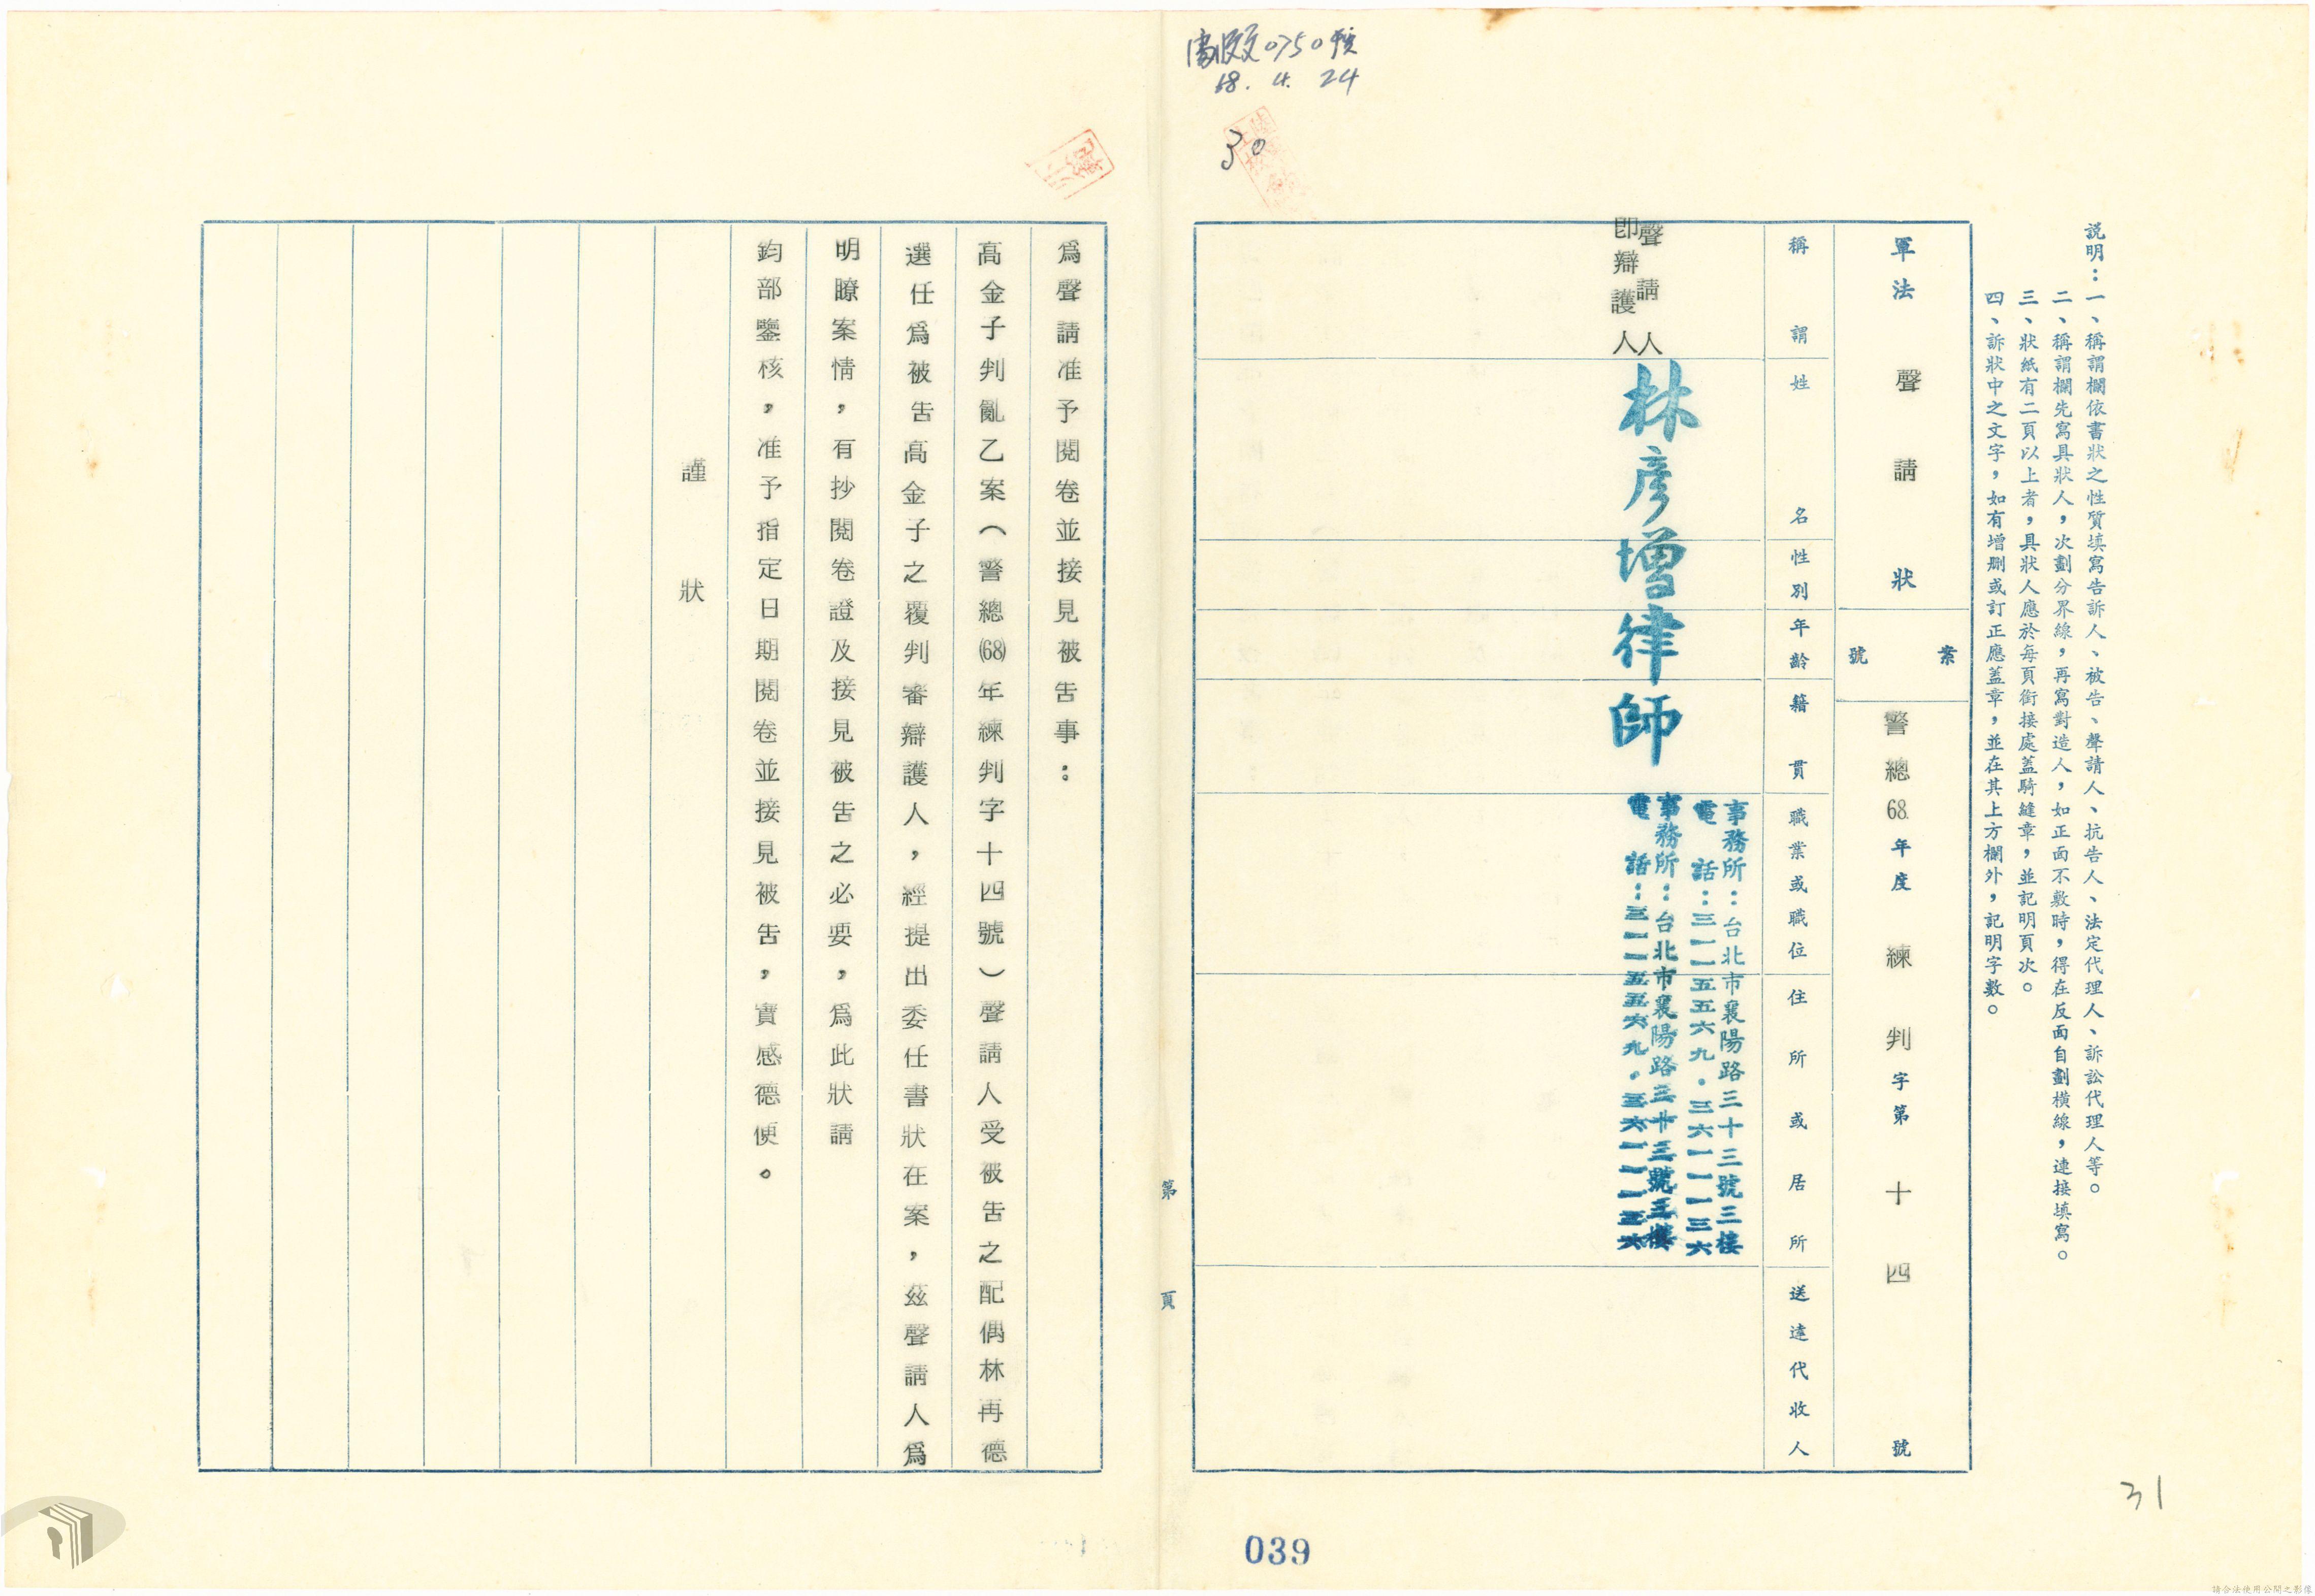 說明：一、稱謂欄依書狀之性質填寫告訴人、被告、聲請人、抗告人、法定代理人、訴訟代理人等。
二、稱謂欄先寫具狀人，次劃分界線，再寫對造人，如正面不敷時，得在反面自劃橫線，連接填寫。
三、狀紙有二頁以上者，具狀人應於每頁銜接處蓋騎縫章，並記明頁次。
四、訴狀中之文字，如有增刪或訂正應蓋章，並在其上方欄外，記明字數。
軍法 聲請狀
案號
警總68.年度練判字第十四號
稱謂
姓名
性別
年齡
籍貫
職業或職位
住所或居所
送達代收人
聲請人
即辯護人
林彥增律師
事務所：台北市襄陽路三十三號三樓
電話：三一一五五六九．三六一一一三六
事務所：台北市襄陽路三十三號三樓
電話：三一一五五六九．三六一一一三六
收文0750號
68.4.24
30
第 頁
爲聲請准予閱卷並接見被告事：
高金子判亂乙案（警總(68)年練判字十四號）聲請人受被告之配偶林再德
選任爲被告高金子之覆判審辯護人，經提出委任書狀在案，茲聲請人爲
明瞭案情，有抄閱卷證及接見被告之必要，爲此狀請
鈞部鑒核，准予指定日期閱卷並接見被告，實感德便。
謹狀
31
039
請合法使用公開之影像